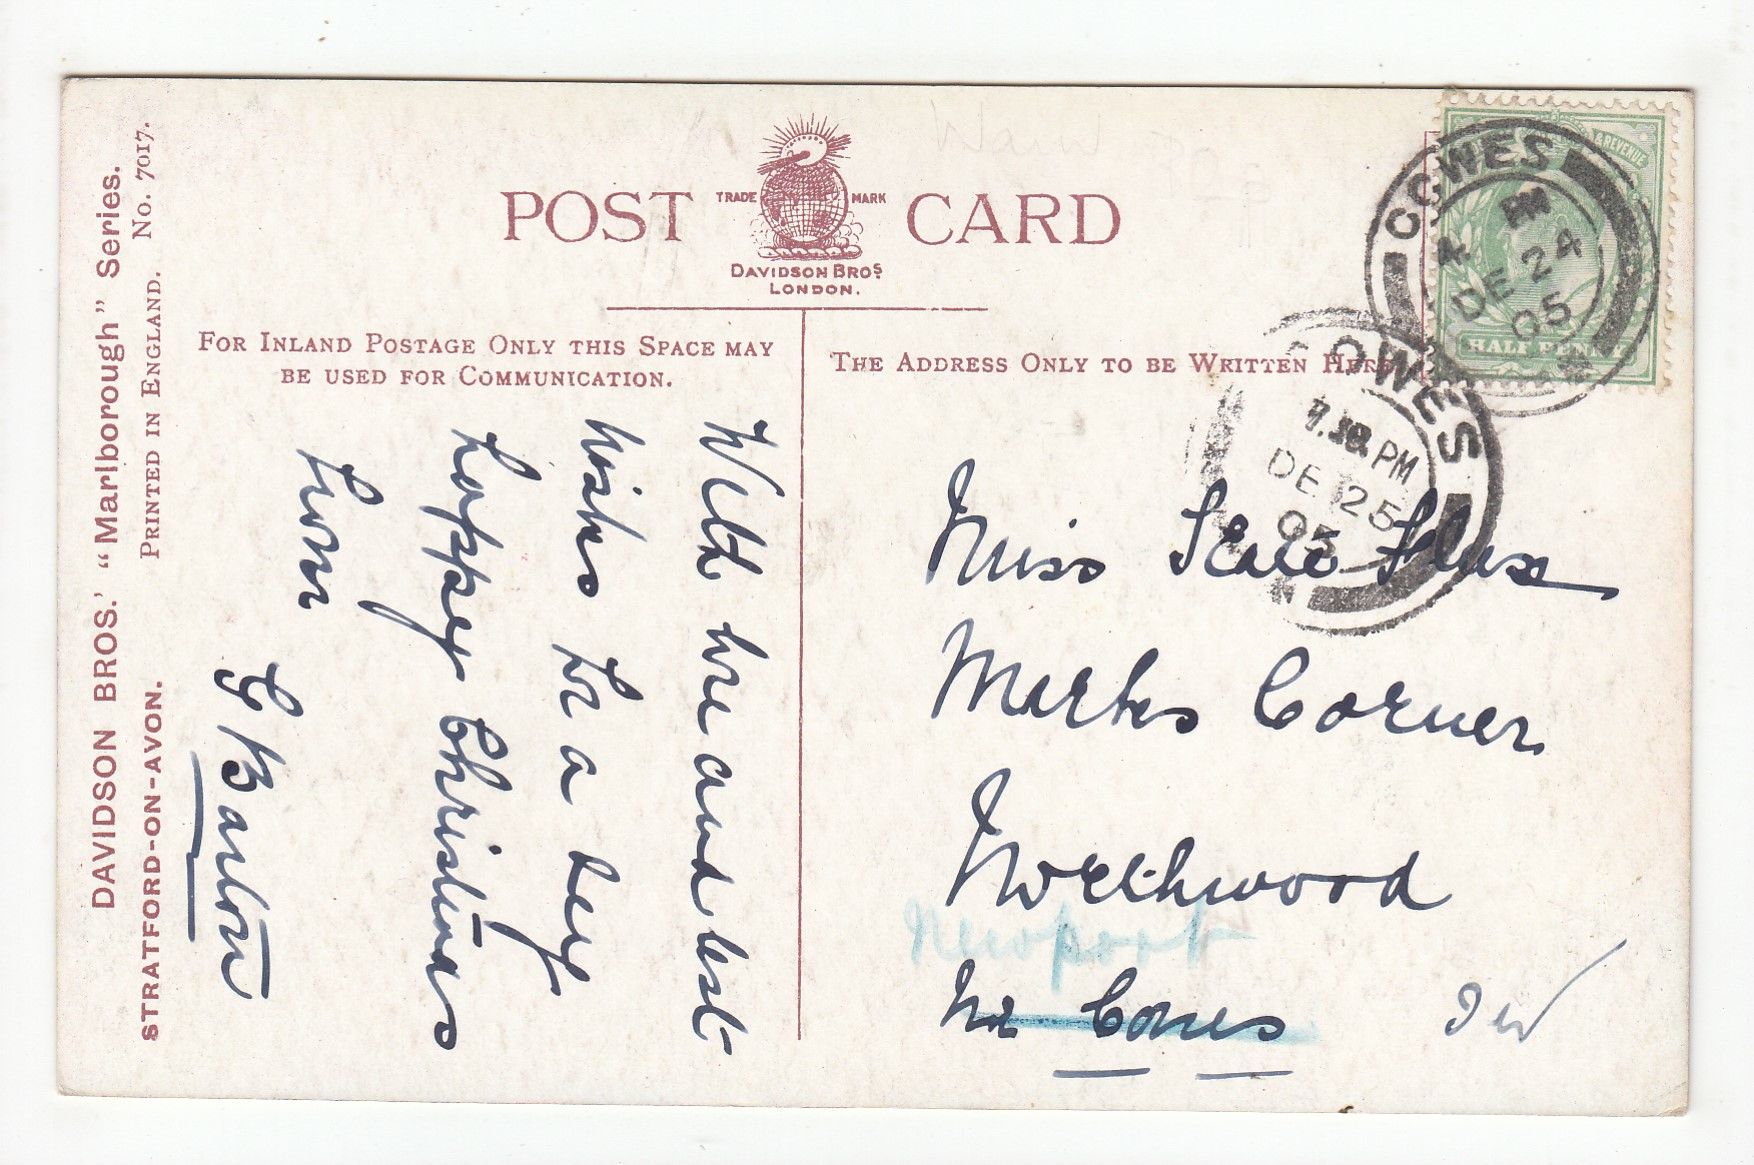 DAVIDSON BROS.' "Marlborough" Series.
STRATFORD-ON-AVON. PRINTED IN ENGLAND. No. 7017.
POST CARD
TRADE MARK
DAVIDSON BROS
LONDON.
FOR INLAND POSTAGE ONLY THIS SPACE MAY
BE USED FOR COMMUNICATION.
THE ADDRESS ONLY TO BE WRITTEN HERE
With love and best
wishes for a very
happy Christmas
from
G Barton
Miss Flux
Corner
Northwood
Newport
Nr Cowes IW
& REVENUE
HALF PENNY
COWES
DE 24
05
COWES
PM
DE 25
05